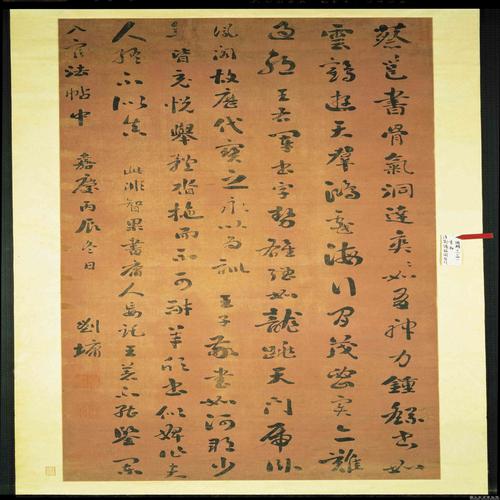 蔡邕書骨氣洞達爽〻如有神力鍾繇書如
雲鵠遊天群鴻戲海行間茂密實亦難
過 王右軍書字勢雄強如龍跳天門虎臥
鳳閣故歷代寶之永以為訓 王子敬書如河朔少
年皆充悅舉體沓拖而不可耐羊欣書似婢作夫
人終不似真 此非智果書庸人妄託王著不能鑒
入官法帖中 嘉慶丙辰冬日 劉墉